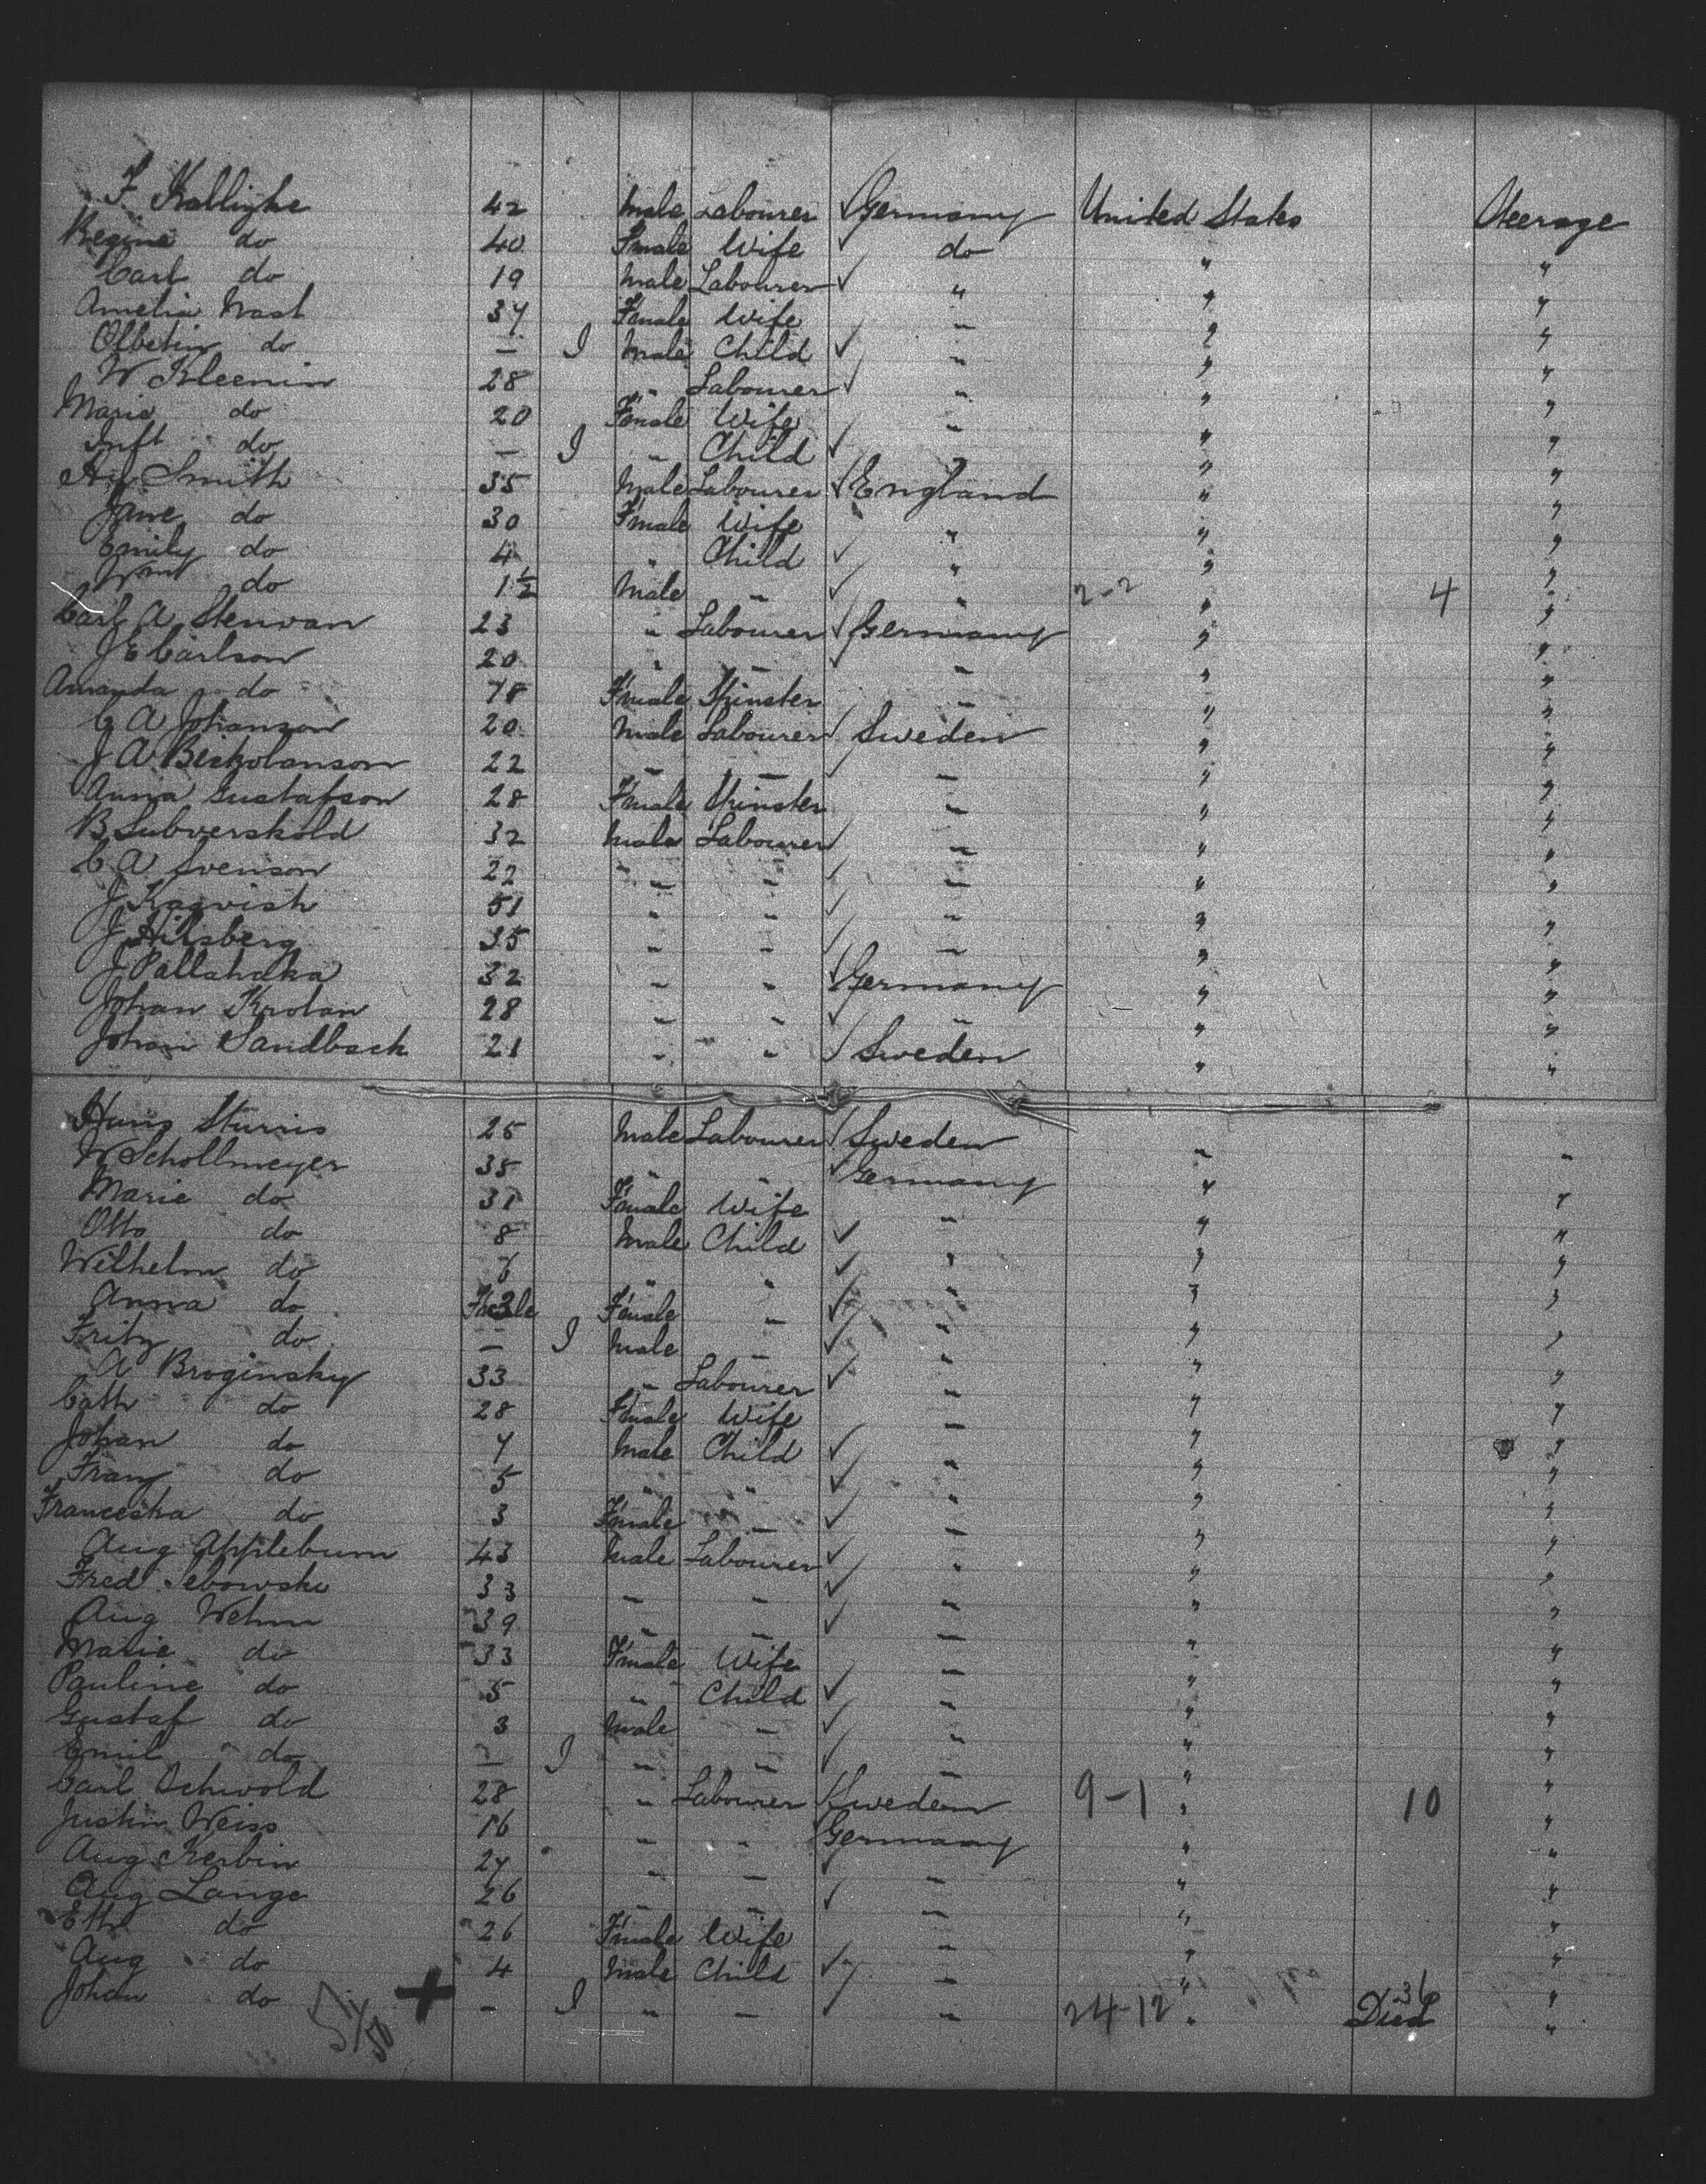 F Kallighe 42 Male Labourer ✓ Germany United States Steerage
Regine do 40 Female Wife ✓ do " "
Carl do 19 Male Labourer ✓ " " "
Amelia Nast 34 Female Wife " " "
do — I Male Child ✓ " " "
W Kleenin 28 " Labourer ✓ " " "
Marie do 20 Female Wife " " "
Inft do — I " Child ✓ " " "
Hy Smith 35 Male Labourer ✓ England " "
Jane do 30 Female Wife " " "
Emily do 4 " Child ✓ " " "
Wm do 1½ Male " ✓ " 2-2 " 4 "
Carl A Stenvan 23 " Labourer ✓ Germany " "
J E Carlson 20 " " ✓ " " "
Amanda do 18 Female Spinster " " "
C A Johanson 20 Male Labourer ✓ Sweden " "
J A 22 " " ✓ " " "
Anna Gustafson 28 Female Spinster " " "
B Subverskold 32 Male Labourer ✓ " " "
C A Svenson 22 " " ✓ " " "
J Kagvish 51 " " ✓ " " "
J Hilsberg 35 " " ✓ " " "
J Pallahaka 32 " " ✓ Germany " "
Johan Krolan 28 " " ✓ " " "
Johan Sandback 21 " " ✓ Sweden " "
Sturis 25 Male Labourer ✓ Sweden " "
W Schollmeyer 35 " " ✓ Germany " "
Marie do 31 Female Wife " " "
Otto do 8 Male Child ✓ " " "
Wilhelm do 6 " " ✓ " " "
Anna do 3 Female " ✓ " " "
Fritz do — I Male " ✓ " " "
A Broginsky 33 " Labourer ✓ " " "
Cath do 28 Female Wife " " "
Johan do 7 Male Child ✓ " " "
Franz do 5 " " ✓ " " "
Franceska do 3 Female " ✓ " " "
Aug Applebum 43 Male Labourer ✓ " " "
Fred Sebowski 33 " " ✓ " " "
Aug Wehm 39 " " ✓ " " "
Marie do 33 Female Wife " " "
Pauline do 5 " Child ✓ " " "
Gustaf do 3 Male " ✓ " " "
Emil do — I " " ✓ " " "
Carl Ochwold 28 " Labourer ✓ Sweden 9-1 " 10 "
Justin Weiss 16 " " Germany " "
Aug Kerbin 24 " " ✓ " " "
Aug Lange 26 " " ✓ " " "
Eth do 26 Female Wife " " "
Aug do 4 Male Child ✓ " " "
Johan do + — I " " ✓ " 24-12 " 36 Died "